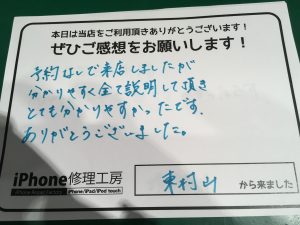 本日は当店をご利用頂きありがとうございます!
ぜひご感想をお願いします!
予約なしで来店しましたが
分かりやすく全て説明して頂き
とても分かりやすかったです。
ありがとうございました。
iPhone修理工房
iPhone/iPad/iPod touch
東村山
から来ました